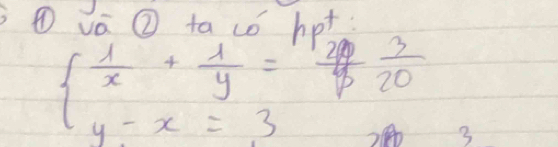 ① và ② ta có hpt:
{ 1/x + 1/y = 3/20
y - x = 3
3